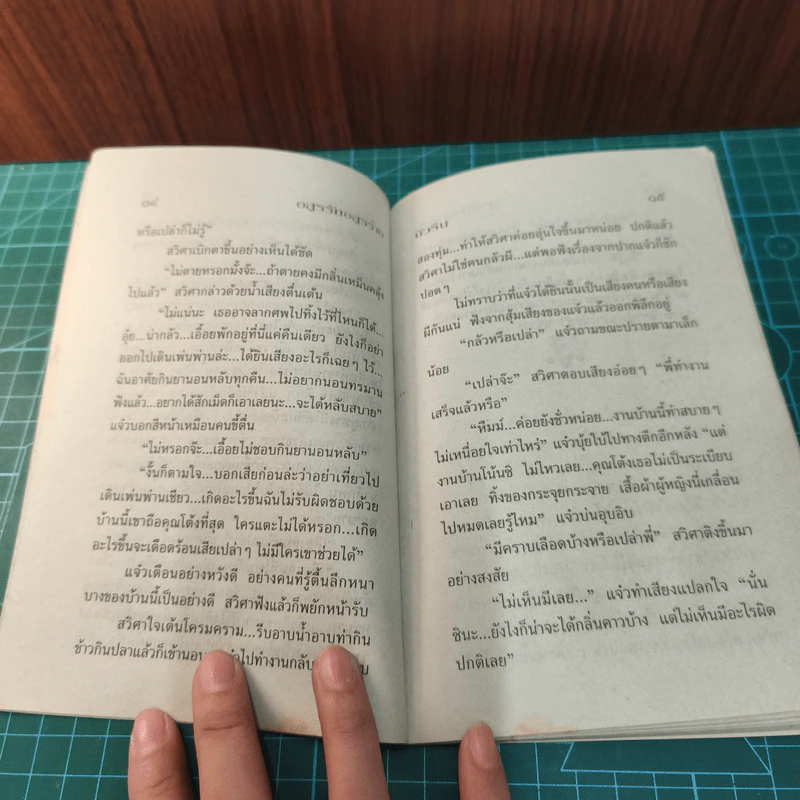 ๑๔
หรือเปล่าก็ไม่รู้”
สวิศาเบิกตาขึ้นอย่างเห็นได้ชัด
“ไม่ตายหรอกมั้งจ๊ะ...ถ้าตายคงมีกลิ่นเหม็นคลุ้ง
ไปแล้ว” สวิศากล่าวด้วยน้ำเสียงตื่นเต้น
“ไม่แน่นะ เธออาจลากศพไปทิ้งไว้ที่ไหนก็ได้...
อุ้ย...น่ากลัว...เอื้อยพักอยู่ที่นี่แค่คืนเดียว ยังไงก็อย่า
ออกไปเดินเพ่นพ่านล่ะ...ได้ยินเสียงอะไรก็เฉยๆ ไว้...
ฉันอาศัยกินยานอนหลับทุกคืน...ไม่อยากนอนทรมาน
ฟังแล้ว...อยากได้สักเม็ดก็เอาเลยนะ...จะได้หลับสบาย”
แจ๋วบอกสีหน้าเหมือนคนขี้ตื่น
“ไม่หรอกจ้ะ...เอื้อยไม่ชอบกินยานอนหลับ”
“งั้นก็ตามใจ...บอกเสียก่อนล่ะว่าอย่าเที่ยวไป
เดินเพ่นพ่านเชียว...เกิดอะไรขึ้นฉันไม่รับผิดชอบด้วย
บ้านนี้เขาถือคุณโด้งที่สุด ใครแตะไม่ได้หรอก...เกิด
อะไรขึ้นจะเดือดร้อนเสียเปล่าๆ ไม่มีใครเขาช่วยได้”
แจ๋วเตือนอย่างหวังดี อย่างคนที่รู้ตื้นลึกหนา
บางของบ้านนี้เป็นอย่างดี สวิศาฟังแล้วก็พยักหน้ารับ
สวิศาใจเต้นโครมคราม...รีบอาบน้ำอาบท่ากิน
ข้าวกินปลาแล้วก็เข้านอน ไปทำงานกลับ
๑๕
สองทุ่ม...ทำให้สวิศาค่อยอุ่นใจขึ้นมาหน่อย ปกติแล้ว
สวิศาไม่ใช่คนกลัวผี...แต่พอฟังเรื่องจากปากแจ๋วก็ชัก
ปอดๆ
ไม่ทราบว่าที่แจ๋วได้ยินนั้นเป็นเสียงคนหรือเสียง
ผีกันแน่ ฟังจากสุ้มเสียงของแจ๋วแล้วออกพิลึกอยู่
“กลัวหรือเปล่า” แจ๋วถามขณะปรายตามาเล็ก
น้อย
“เปล่าจ๊ะ” สวิศาตอบเสียงอ่อยๆ “พี่ทำงาน
เสร็จแล้วหรือ”
“หืมม์...ค่อยยังชั่วหน่อย...งานบ้านนี้ทำสบายๆ
ไม่เหนื่อยใจเท่าไหร่” แจ๋วบุ้ยใบ้ไปทางตึกอีกหลัง “แต่
งานบ้านโน้นซิ ไม่ไหวเลย...คุณโด้งเธอไม่เป็นระเบียบ
เอาเลย ทิ้งของกระจุยกระจาย เสื้อผ้าผู้หญิงนี่เกลื่อน
ไปหมดเลยรู้ไหม” แจ๋วบ่นอุบอิบ
“มีคราบเลือดบ้างหรือเปล่าพี่” สวิศาดิงขึ้นมา
อย่างสงสัย
“ไม่เห็นมีเลย...” แจ๋วทำเสียงแปลกใจ “นั่น
ซินะ...ยังไงก็น่าจะได้กลิ่นคาวบ้าง แต่ไม่เห็นมีอะไรผิด
ปกติเลย”